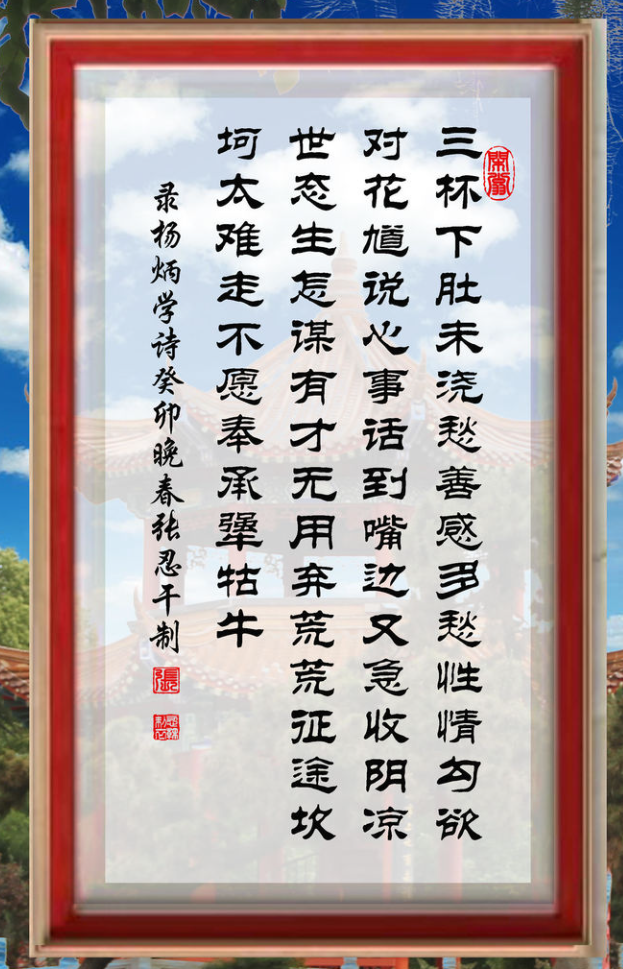 三杯下肚未浇愁善感多愁性情勾欲
对花馗说心事话到嘴边又急收阴凉
世态生怎谋有才无用弃荒荒征途坎
坷太难走不愿奉承犟牯牛
录杨炳学诗癸卯晚春张忍干制
張